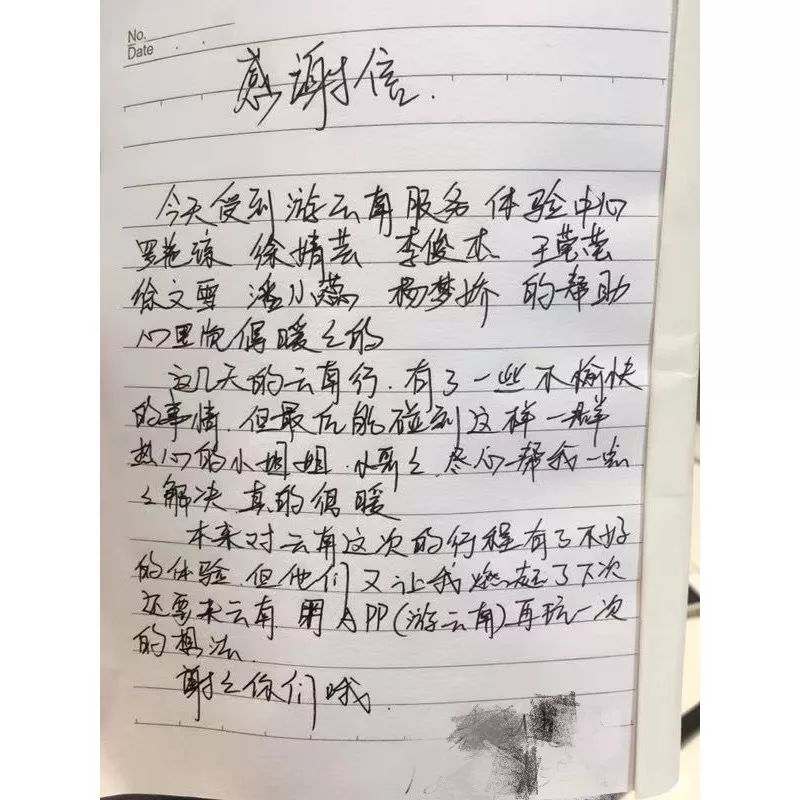 No.
Date
感谢信.
今天受到游云南服务体验中心
徐婧芸 李俊杰 王莹莹
徐文雪 潘小 杨梦娇 的帮助
心里觉得暖々的
这几天的云南行.有了一些不愉快
的事情.但最后能碰到这样一群
热心的小姐姐.小哥々.尽心帮我一点
々解决 真的很暖
本来对云南这次的行程有了不好
的体验 但他们又让我燃起了下次
还要来云南 用APP(游云南)再玩一次
的想法.
谢々你们哦.